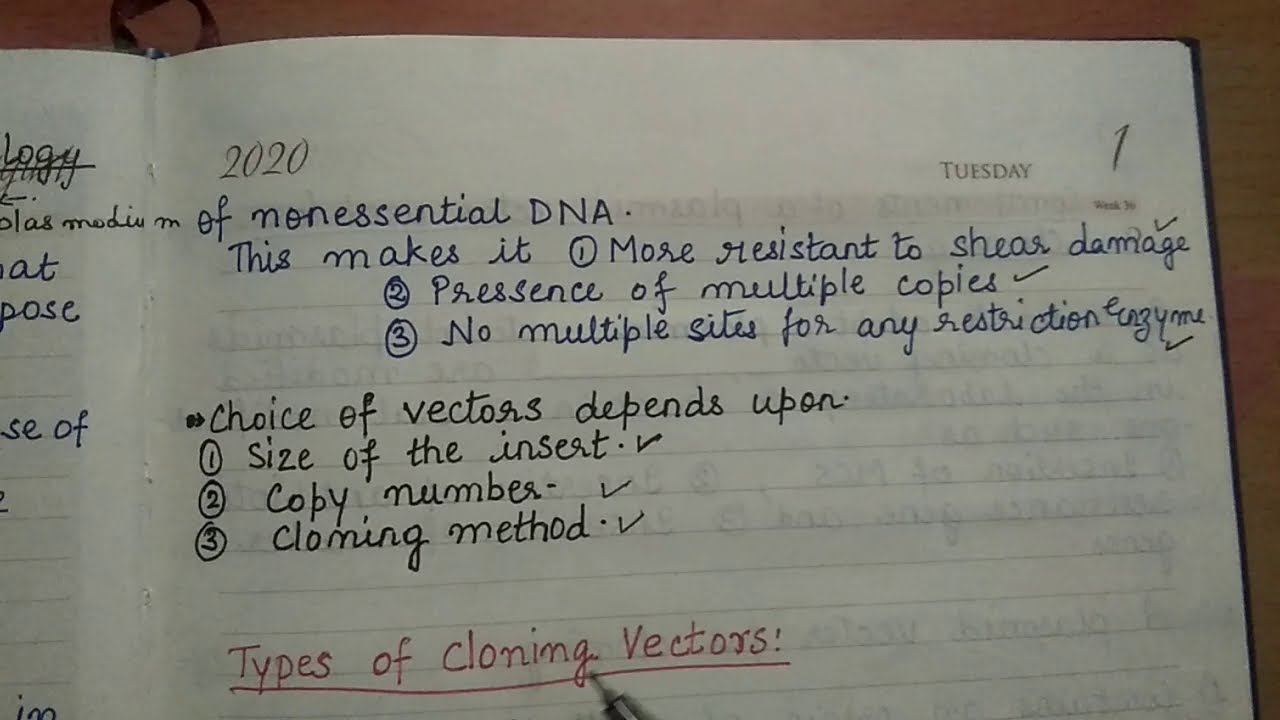 2020
TUESDAY 1
Week 36
of nonessential DNA.
This makes it ① More resistant to shear damage
② Pressence of multiple copies ✓
③ No multiple sites for any restriction enzyme ✓
Choice of vectors depends upon.
① Size of the insert. ✓
② Copy number- ✓
③ Cloning method. ✓
Types of Cloning Vectors:
logy
plasmodium
pose
se of
im